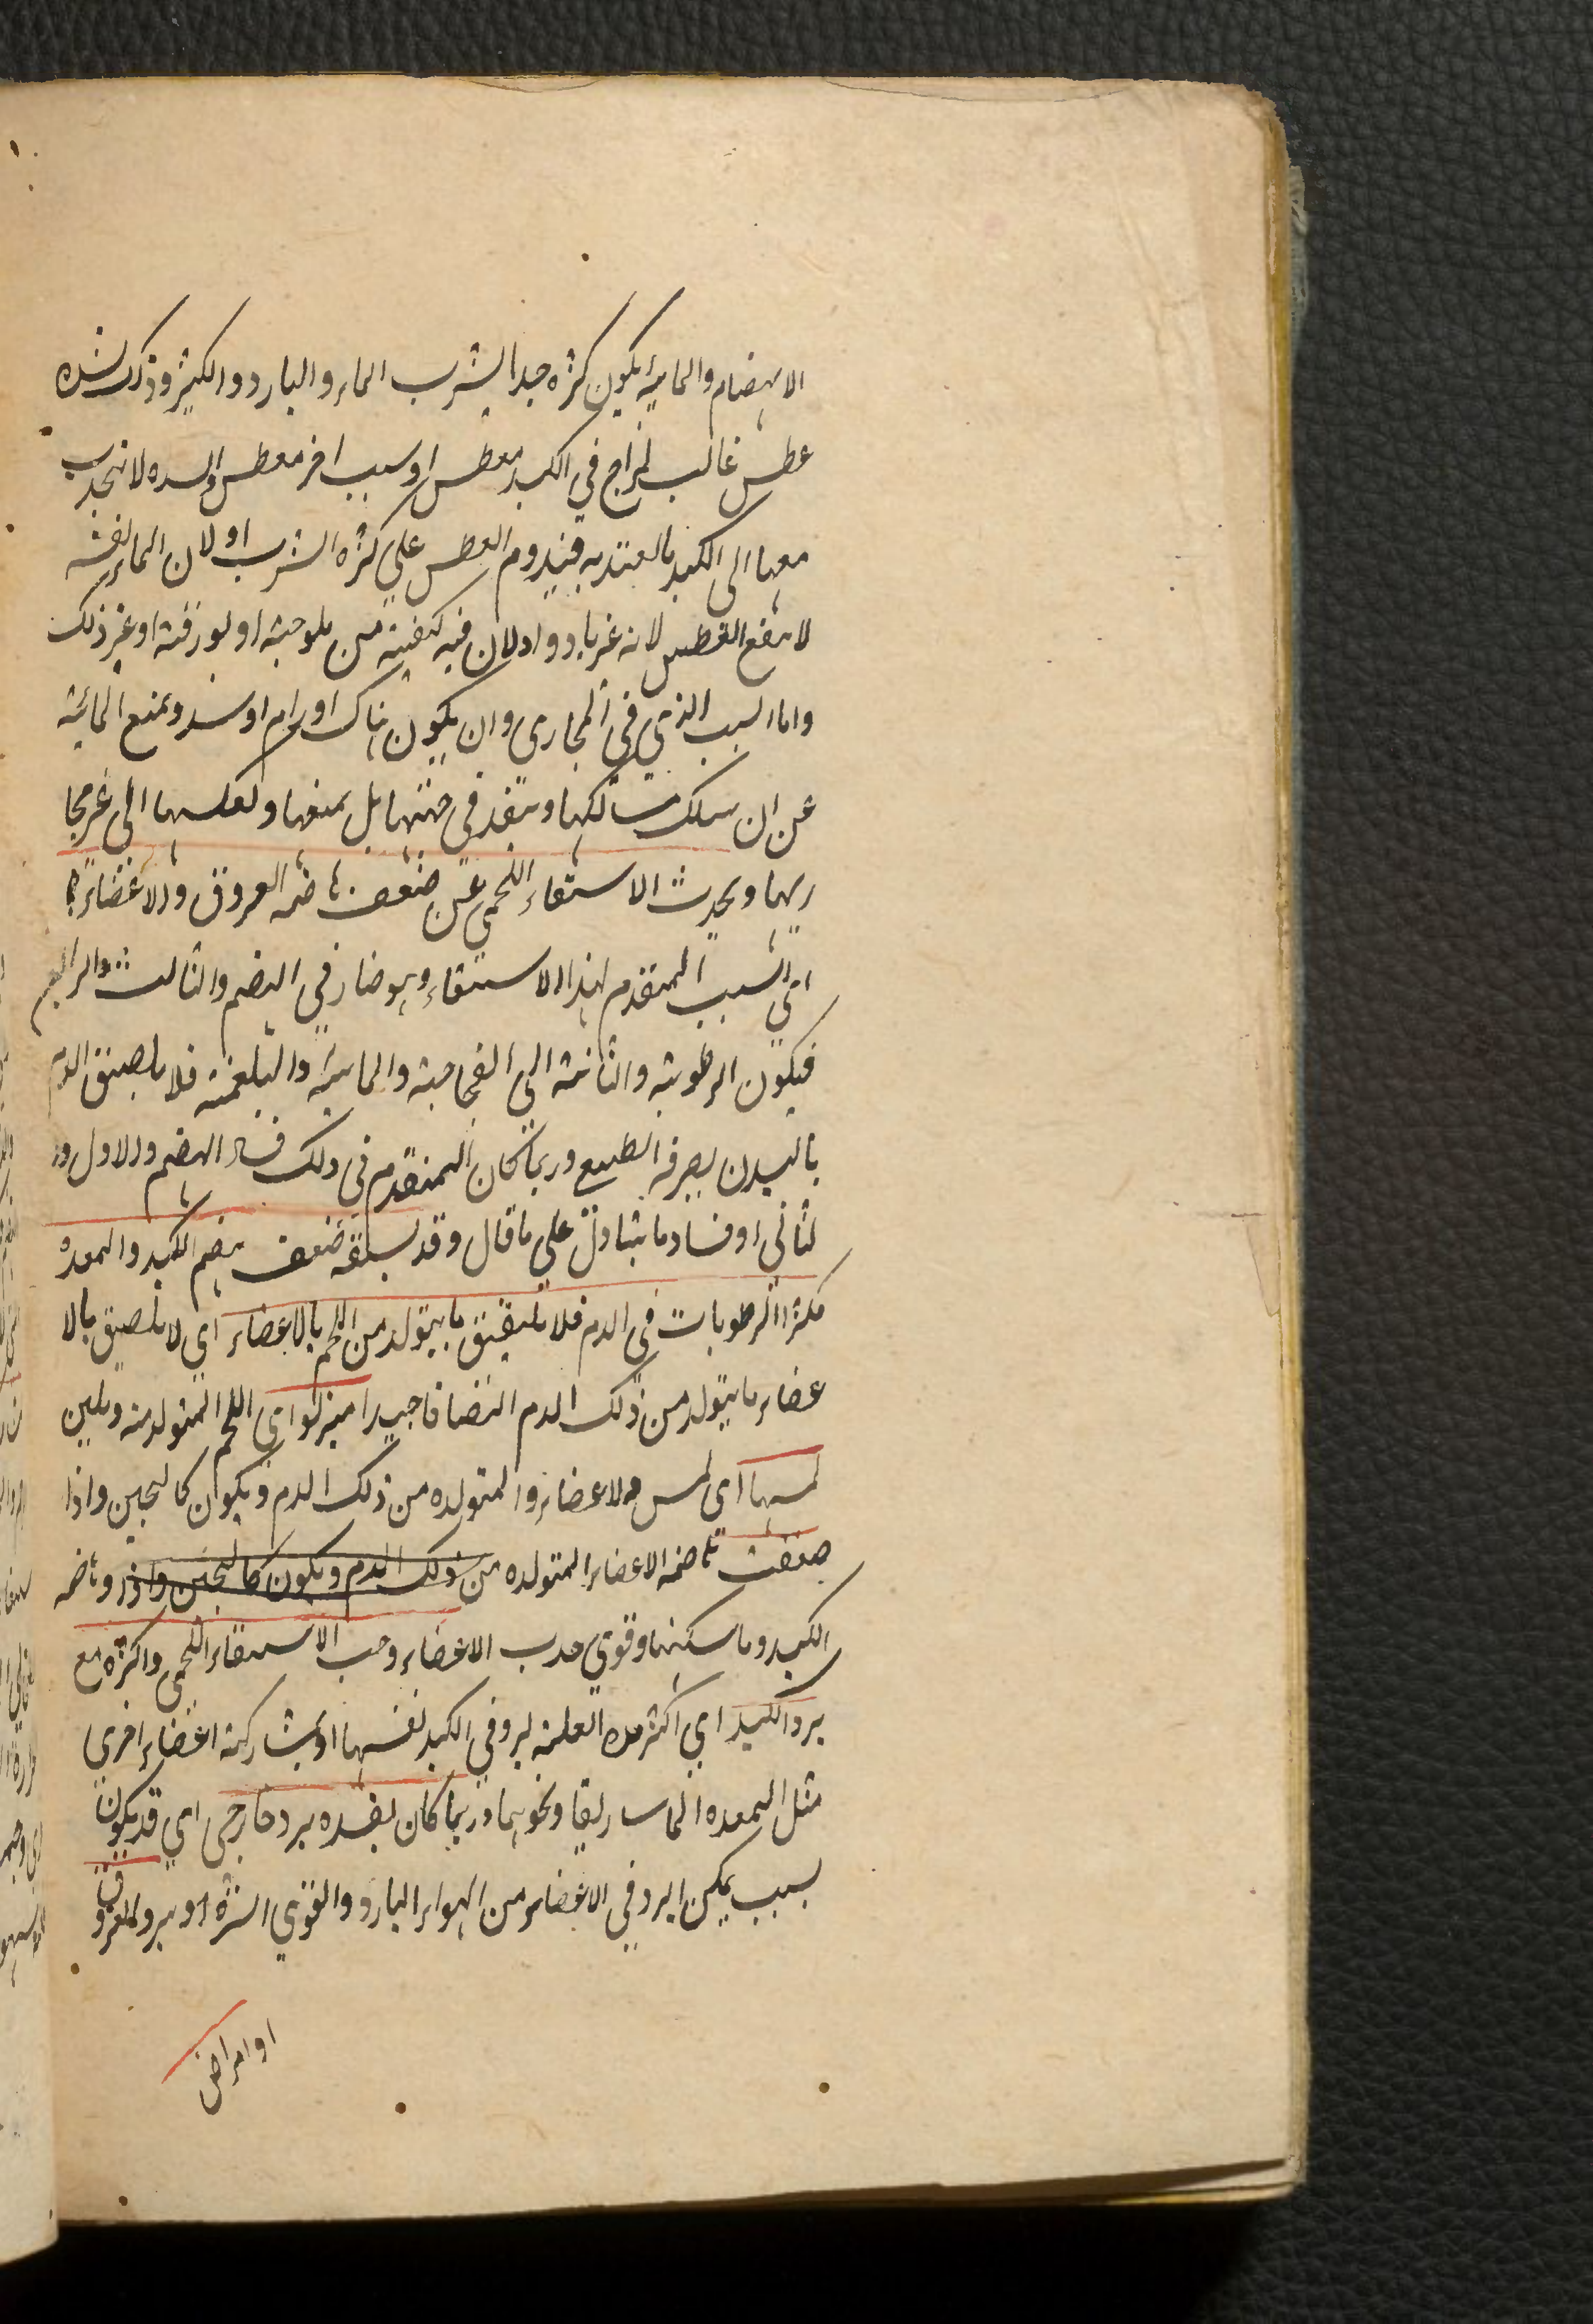 الانهضام والمائية يكون كثرة جدا لشرب الماء والبارد والكثير وذلك لشدة
عطس غالب لمزاج في الكبد معطس او سبب اخر معطس والسده لا تنجذب
معها الى الكبد بالعتد به فيدوم العطس علي كثره الشرب او لان الماء نفسه
لا ينفع العطس لانه غر بارد او لان فيه كيفية من ملوحية او بورقية او غير ذلك
واما السبب الذي في المجارى وان يكون هناك اورام او سدد يمنع المائية
عن ان يسلك مسالكها وينفد في جهتها بل يمنعها ويعكسها الى غر مجا
ريها ويحدث الاستقاء اللحمي عن ضعف هاضمة العروق والاعضاء
اي السبب المتقدم لهذا الاستقاء وهو ضار في الهضم والثالث والرابع
فيكون الرطوبة والثانية الى الفجاجية والمائية والبلغمية فلا يلصق الدم
بالبدن لصرفه الطبيع وربما كان المتقدم في ذلك فساد الهضم والاول وا
لثاني او فساد ما يتناول علي ما قال وقد يسبقه ضعف هضم الكبد والمعده
فكثر الرطوبات في الدم فلا يلتصق ما يتولد من اللحم بالاعضاء اي لا يلصق بالا
عضاء ما يتولد من ذلك الدم التصاقا جيدا اي اللحم المتولد منه ويلين
لمسها اى لمس والاعضاء والمتولده من ذلك الدم ويكون كالعجين واذا
ضعفت هاضمة الاعضاء المتولده من ذلك الدم ويكون كالعجين واذا وهاضمه
الكبد وماسكتها وقوي جدب الاعضاء وجب الاستقاء اللحمى واكثره مع
برد الكبد اي اكثر هده العلية لبرد في الكبد نفسها او بمشاركة اعضاء اخرى
مثل المعده الماساريقا ونحوهما وربما كان لفده برد خارجى اي قد يكون
بسبب يمكن البرد في الاعضاء من الهواء البارد والقوي اشره او برد العروق
او امراض